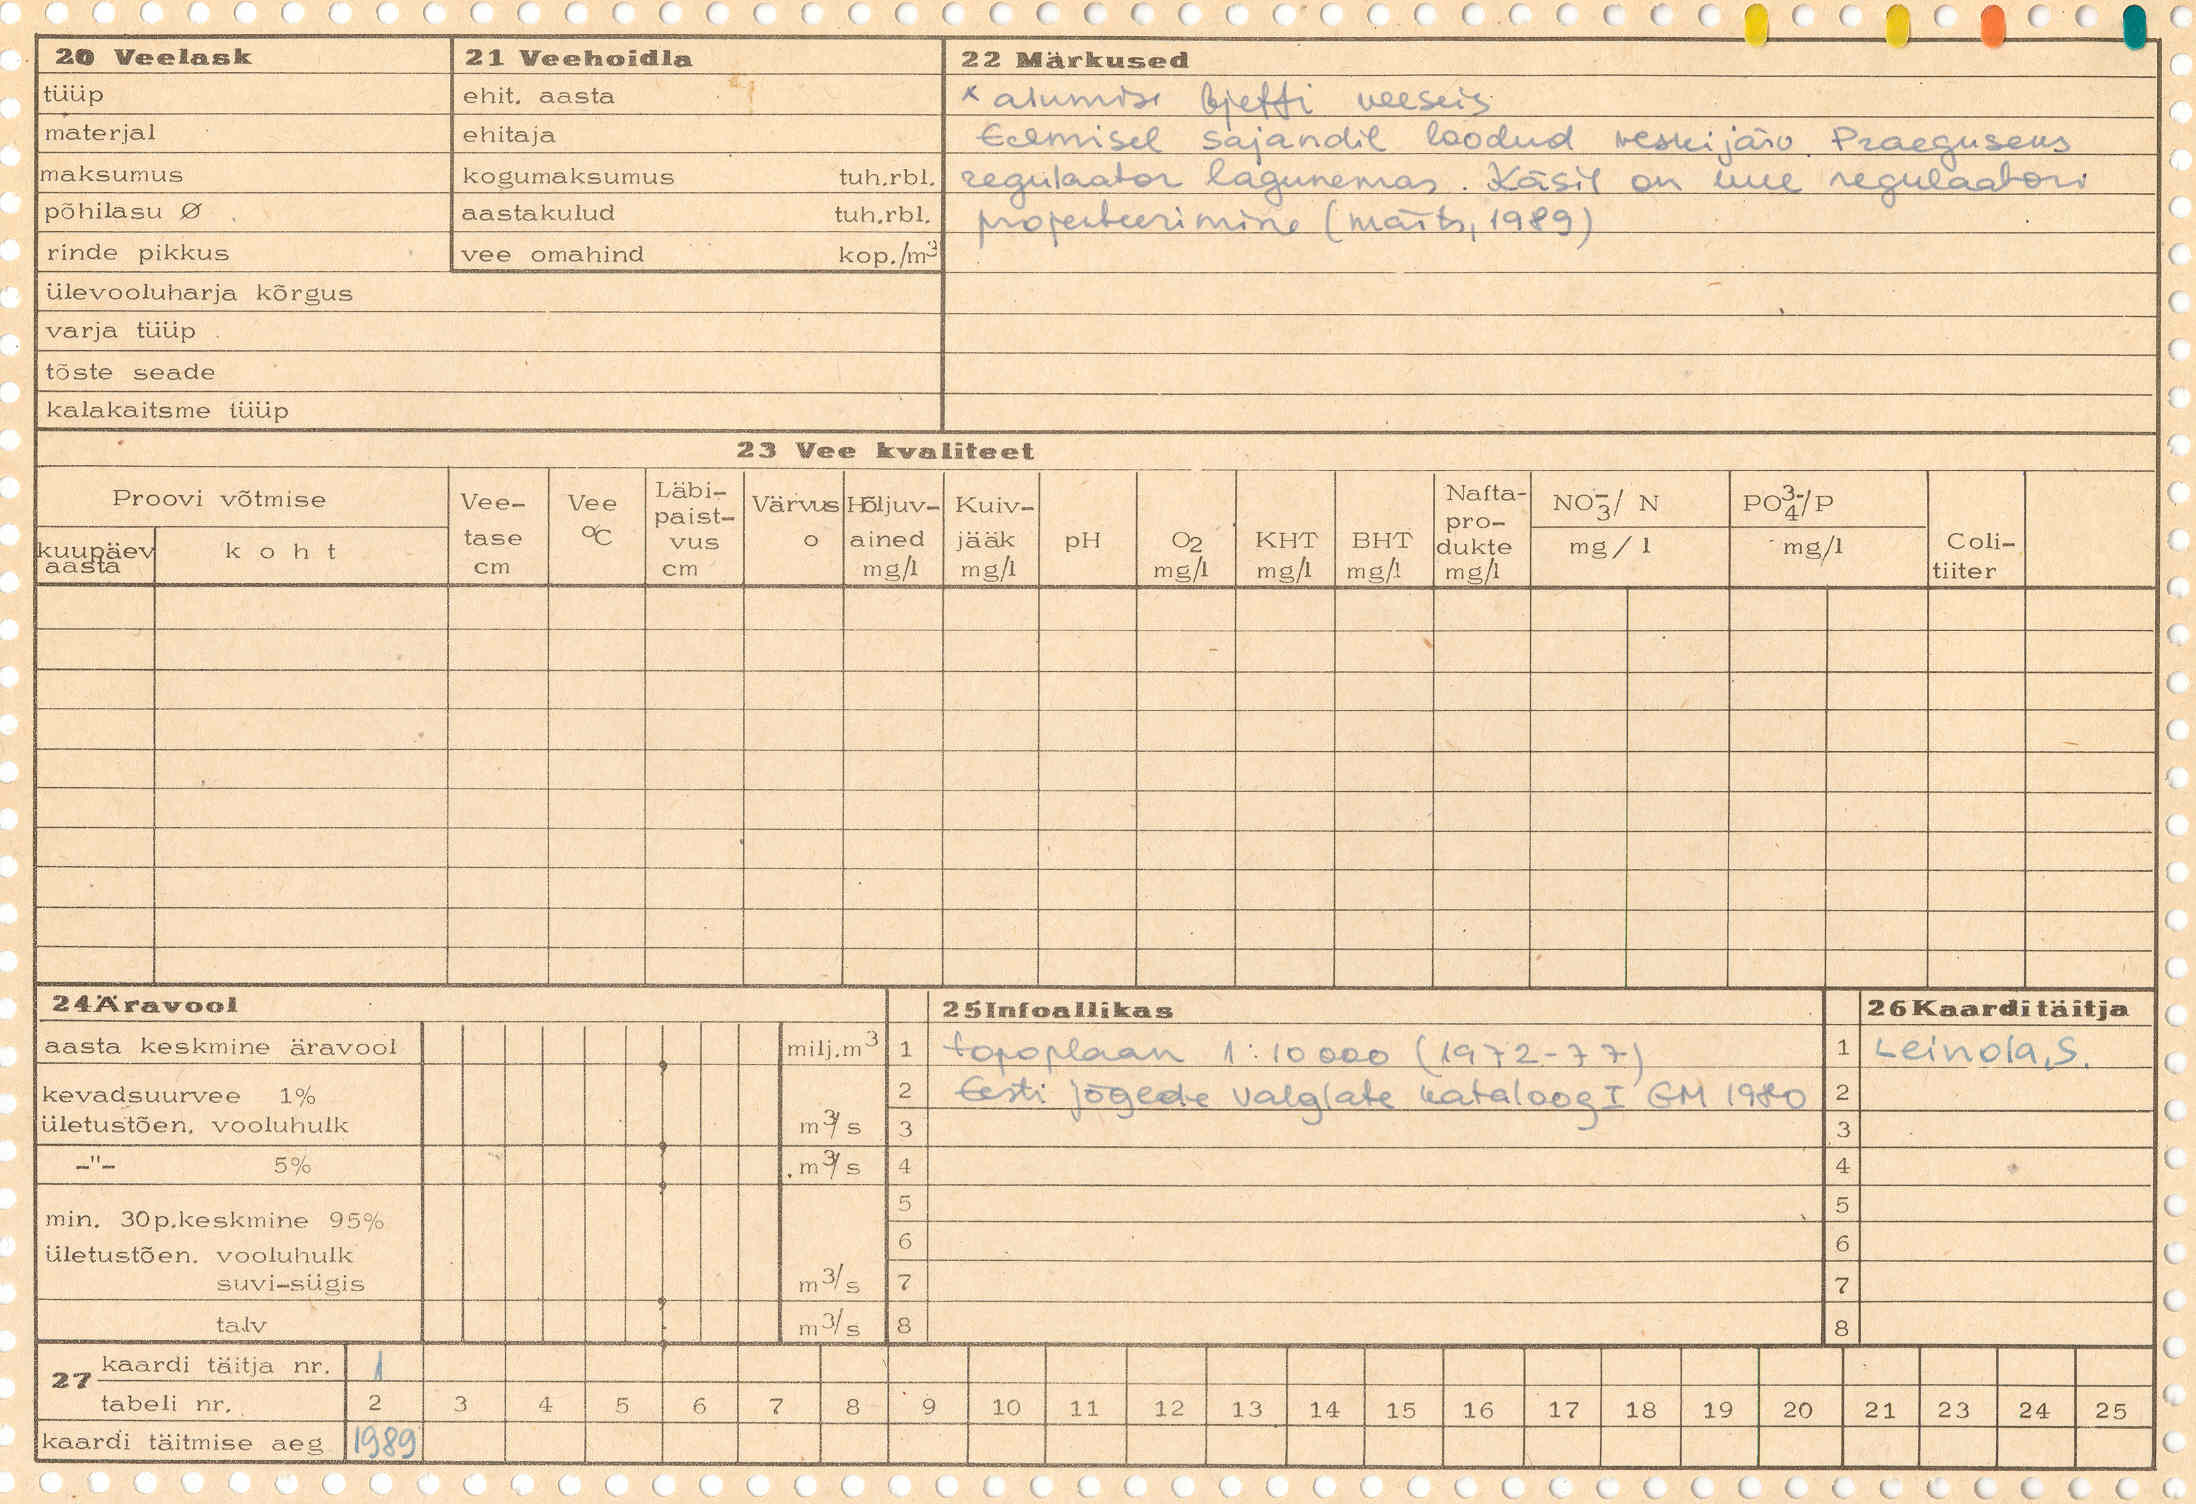 20 Veelask
tüüp
materjal
maksumus
põhilasu Ø
rinde pikkus
ülevooluharja kõrgus
varja tüüp
tõste seade
kalakaitsme tüüp
21 Veehoidla
ehit. aasta
ehitaja
kogumaksumus tuh.rbl.
aastakulud tuh.rbl.
vee omahind kop./m³
22 Märkused
* alumise bjeffi veeseis
Eelmisel sajandil loodud veskijärv. Praeguseks
regulaator lagunemas. Käsil on uue regulaatori
projekteerimine (märts, 1989)
23 Vee kvaliteet
Proovi võtmise
kuupäev aasta
koht
Vee-tase cm
Vee °C
Läbi-paist-vus cm
Värvus o
Hõljuv-ained mg/l
Kuiv-jääk mg/l
pH
O₂ mg/l
KHT mg/l
BHT mg/l
Nafta-pro-dukte mg/l
NO₃⁻/ N mg/l
PO₄³⁻/P mg/l
Coli-tiiter
24 Äravool
aasta keskmine äravool milj.m³
kevadsuurvee 1%
ületustõen. vooluhulk m³/s
-"- 5% m³/s
min. 30p.keskmine 95%
ületustõen. vooluhulk
suvi-sügis m³/s
talv m³/s
25 Infoallikas
1 topoplaan 1:10 000 (1972-77)
2 Eesti jõgede valglate kataloog I GM 1980
3
4
5
6
7
8
26 Kaardi täitja
1 Leinola, S.
2
3
4
5
6
7
8
27 kaardi täitja nr. 1
tabeli nr. 2 3 4 5 6 7 8 9 10 11 12 13 14 15 16 17 18 19 20 21 23 24 25
kaardi täitmise aeg 1989